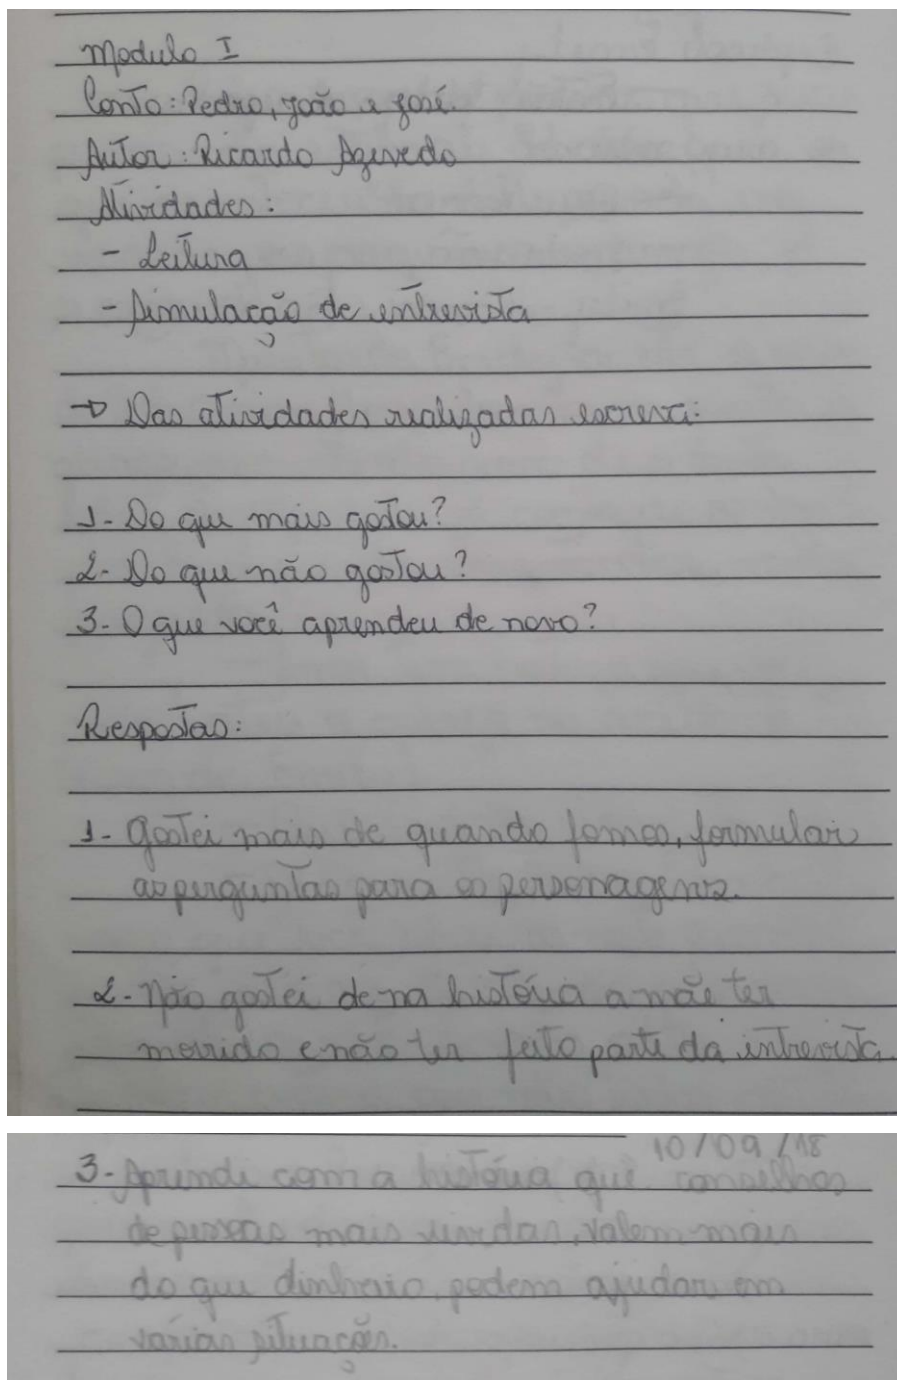 Modulo I
Conto: Pedro, João e José.
Autor: Ricardo Azevedo
Atividades:
- Leitura
- Simulação de entrevista
→ Das atividades realizadas escreva:
1- Do que mais gotou?
2- Do que não gostou?
3- O que você aprendeu de novo?
Respostas:
1- Gostei mais de quando fomos, formular
as perguntas para os personagens.
2- Não gostei de na história a mãe ter
morrido e não ter feito parte da entrevista.
10/09/18
3- Aprendi com a história que conselhos
de pessoas mais vividas, valem mais
do que dinheiro, podem ajudar em
várias situações.